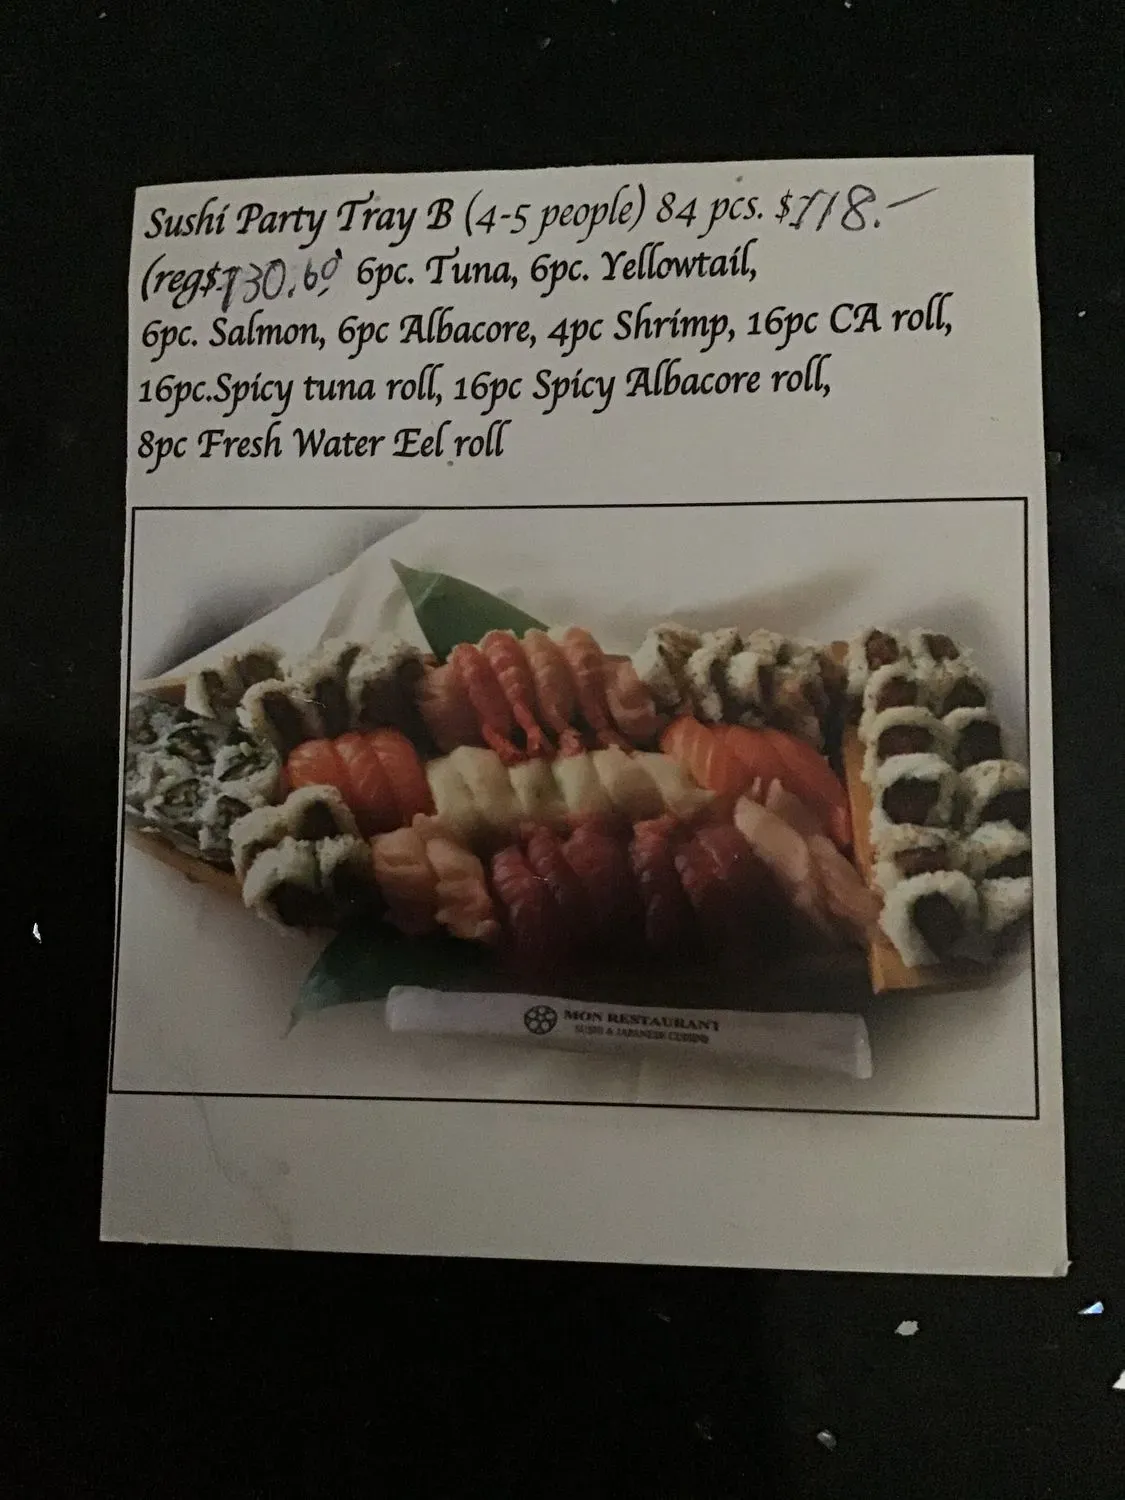 Sushi Party Tray B (4-5 people) 84 pcs. $118.-
(reg$130.60 6pc. Tuna, 6pc. Yellowtail,
6pc. Salmon, 6pc Albacore, 4pc Shrimp, 16pc CA roll,
16pc.Spicy tuna roll, 16pc Spicy Albacore roll,
8pc Fresh Water Eel roll
MON RESTAURANT
SUSHI & JAPANESE CUISINE